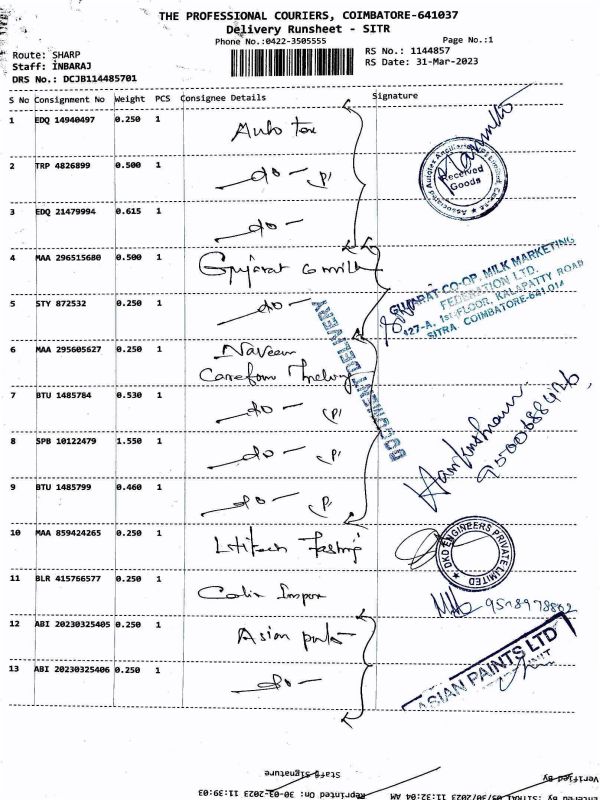 THE PROFESSIONAL COURIERS, COIMBATORE-641037
Delivery Runsheet - SITR
Phone No.:0422-3505555 Page No.:1
Route: SHARP RS No.: 1144857
Staff: INBARAJ RS Date: 31-Mar-2023
DRS No.: DCJB114485701
S No Consignment No Weight PCS Consignee Details Signature
1 EDQ 14940497 0.250 1 Auto Tex
2 TRP 4826899 0.500 1 do
3 EDQ 21479994 0.615 1 do
Received
Goods
4 MAA 296515680 0.500 1 Gujarat co milk
GUJARAT CO-OP. MILK MARKETING
FEDERATION LTD.
127-A, 1st FLOOR, KALAPATTY ROAD
SITRA, COIMBATORE-641 014
5 STY 872532 0.250 1 do
DOCUMENT DELIVERY
6 MAA 295605627 0.250 1 Naveen
7 BTU 1485784 0.530 1 do
8 SPB 10122479 1.550 1 do
9 BTU 1485799 0.460 1 do
10 MAA 859424265 0.250 1 Hitech
DKO ENGINEERS PRIVATE LIMITED
11 BLR 415766577 0.250 1
12 ABI 20230325405 0.250 1 Asian
13 ABI 20230325406 0.250 1 do
ASIAN PAINTS LTD
Staff Signature
Verified By
Reprinted On: 30-03-2023 11:39:03
2023 11:32:04 AM